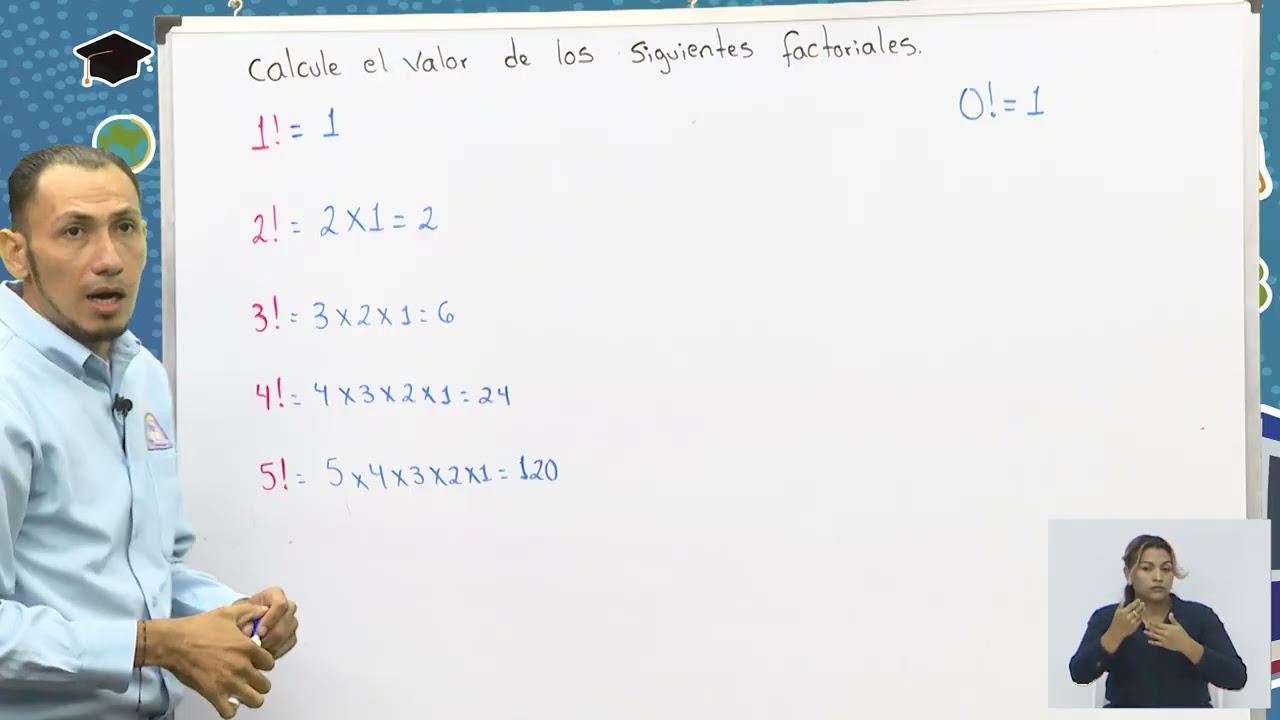 Calcule el valor de los siguientes factoriales.
0! = 1
1! = 1
2! = 2 x 1 = 2
3! = 3 x 2 x 1 = 6
4! = 4 x 3 x 2 x 1 = 24
5! = 5 x 4 x 3 x 2 x 1 = 120